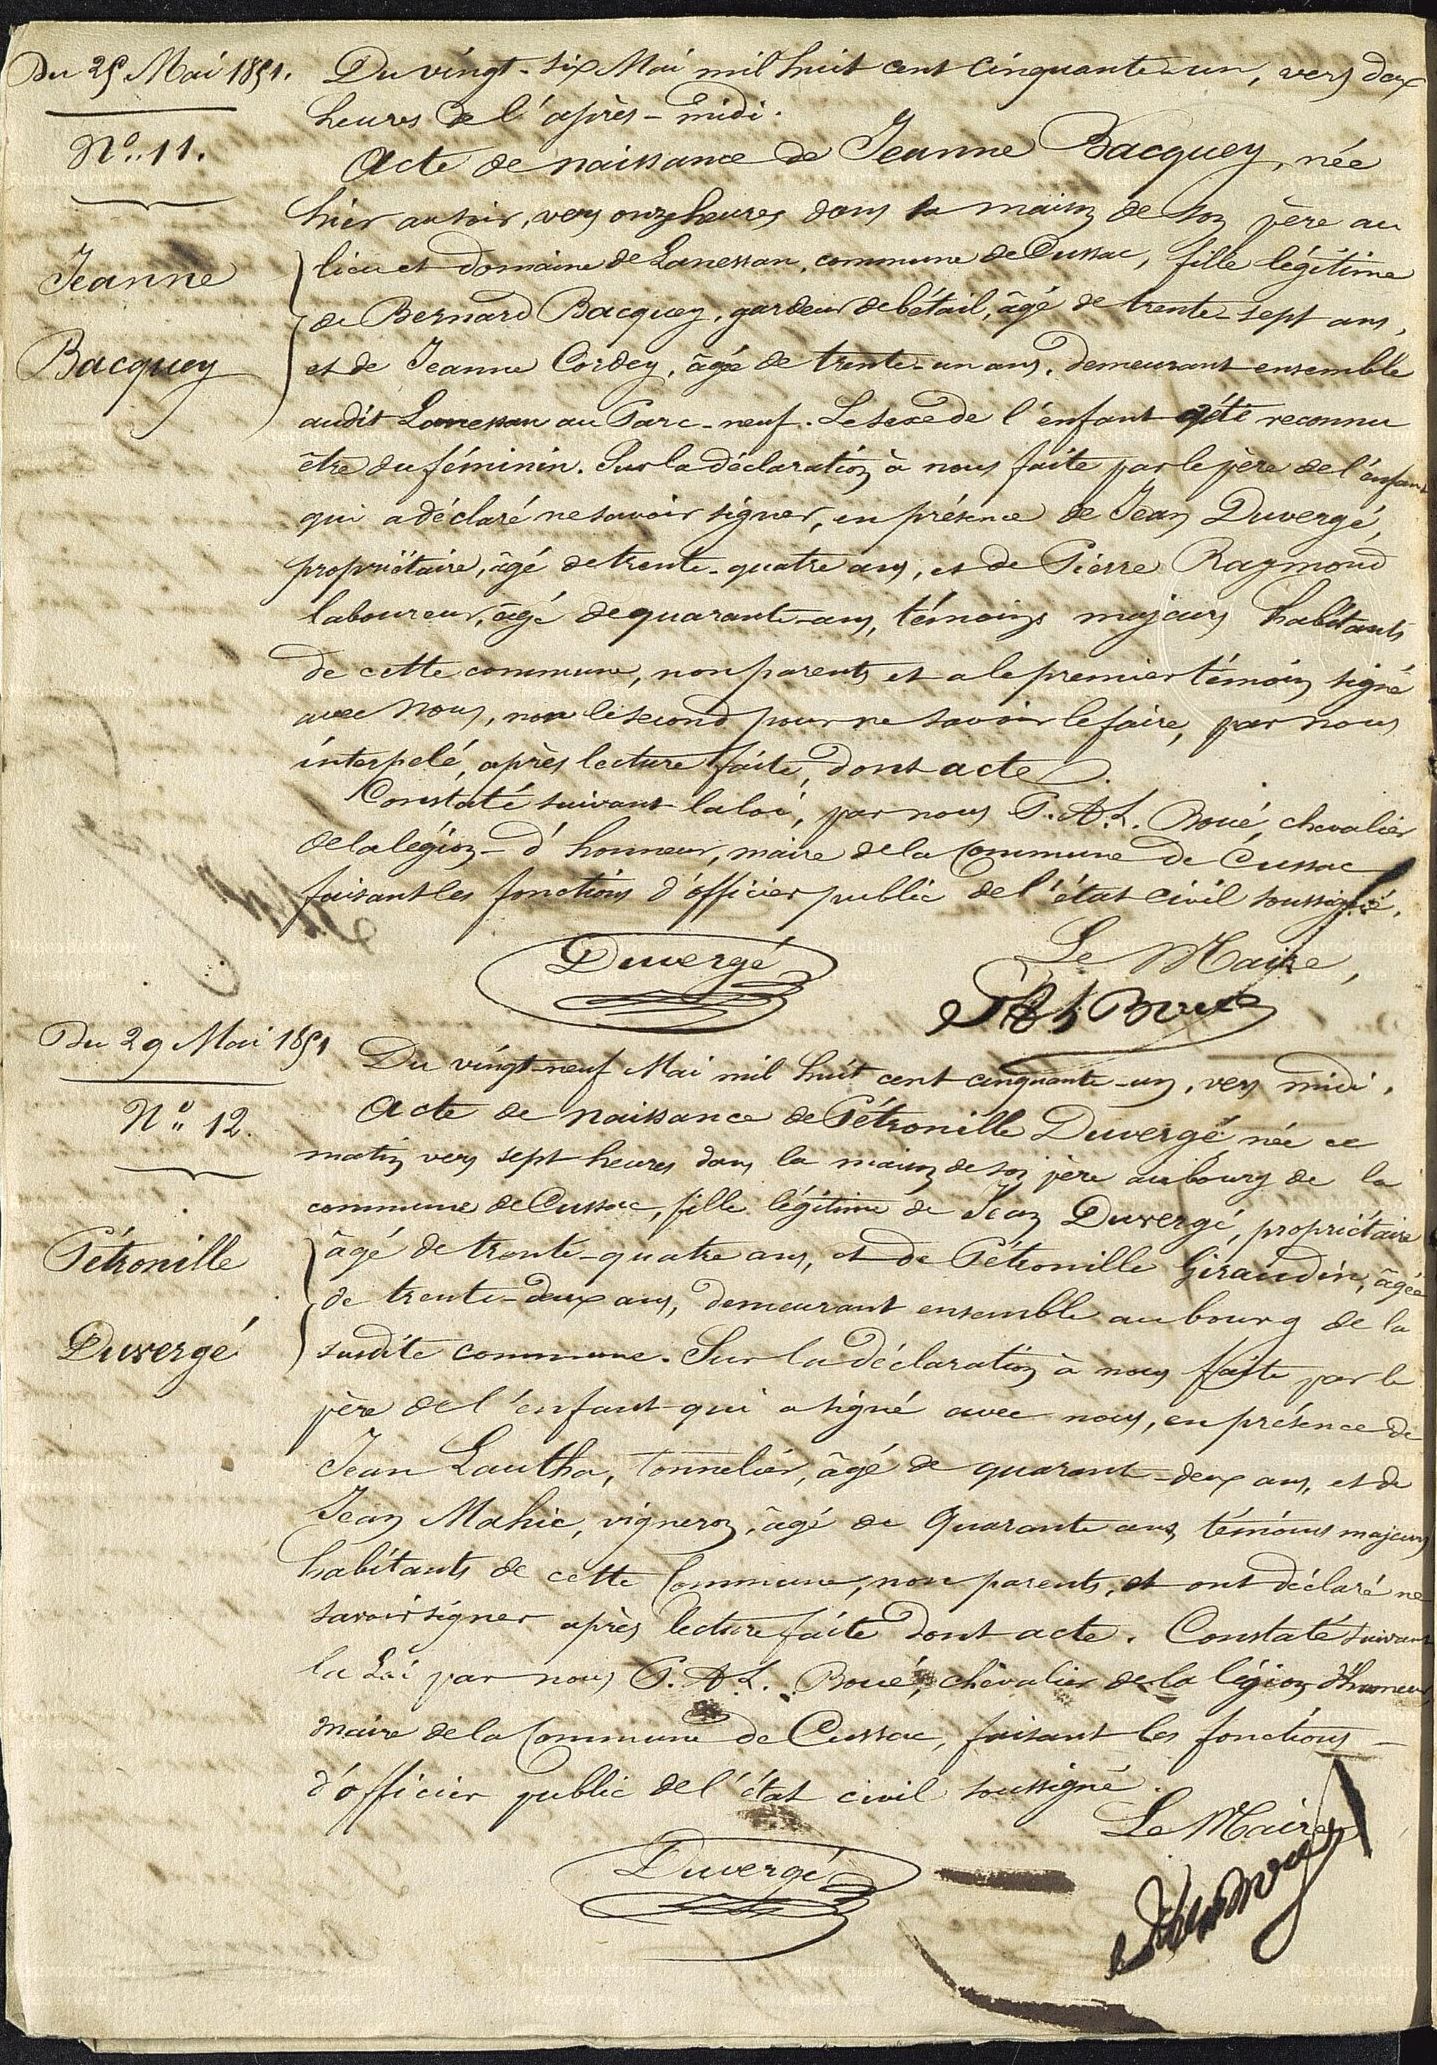 Du 25 Mai 1851.
N° 11.
Jeanne
Bacquey
Du vingt-six Mai mil huit cent cinquante-un, vers deux
heures de l'après-midi.
Acte de naissance de Jeanne Bacquey, née
hier au soir, vers onze heures dans la maison de son père au
lieu et domaine de Lanessan, commune de Cussac, fille légitime
de Bernard Bacquey, gardeur de bétail, âgé de trente-sept ans,
et de Jeanne Cordey, âgée de trente-un ans, demeurant ensemble
audit Lanessan au Parc-neuf. Le sexe de l'enfant a été reconnu
être du féminin. Sur la déclaration à nous faite par le père de l'enfant
qui a déclaré ne savoir signer, en présence de Jean Duvergé,
propriétaire, âgé de trente-quatre ans, et de Pierre Raymond
laboureur, âgé de quarante-ans, témoins majeurs habitants
de cette commune, non parents et a le premier témoin signé
avec nous, non le second pour ne savoir le faire, par nous
interpelé, après lecture faite, dont acte.
Constaté suivant la loi, par nous P. A. L. Boué, chevalier
de la légion-d'honneur, maire de la Commune de Cussac
faisant les fonctions d'officier public de l'état civil soussigné.
Duvergé
Le Maire,
P A L Boué
Du 29 Mai 1851
N° 12.
Pétronille
Duvergé
Du vingt-neuf Mai mil huit cent cinquante-un, vers midi.
Acte de naissance de Pétronille Duvergé née ce
matin vers sept heures dans la maison de son père au bourg de la
commune de Cussac, fille légitime de Jean Duvergé, propriétaire
âgé de trente-quatre ans, et de Pétronille Giraudin, âgée
de trente-deux ans, demeurant ensemble au bourg de la
susdite commune. Sur la déclaration à nous faite par le
père de l'enfant qui a signé avec nous, en présence de
Jean Lautha, tonnelier, âgé de quarant-deux ans, et de
Jean Mahie, vigneron, âgé de Quarante ans, témoins majeurs
habitants de cette Commune, non parents, et ont déclaré ne
savoir signer après lecture faite dont acte. Constaté suivant
la Loi par nous P. A. L. Boué, chevalier de la légion d'honneur,
maire de la Commune de Cussac, faisant les fonctions
d'officier public de l'état civil soussigné.
Duvergé
Le Maire